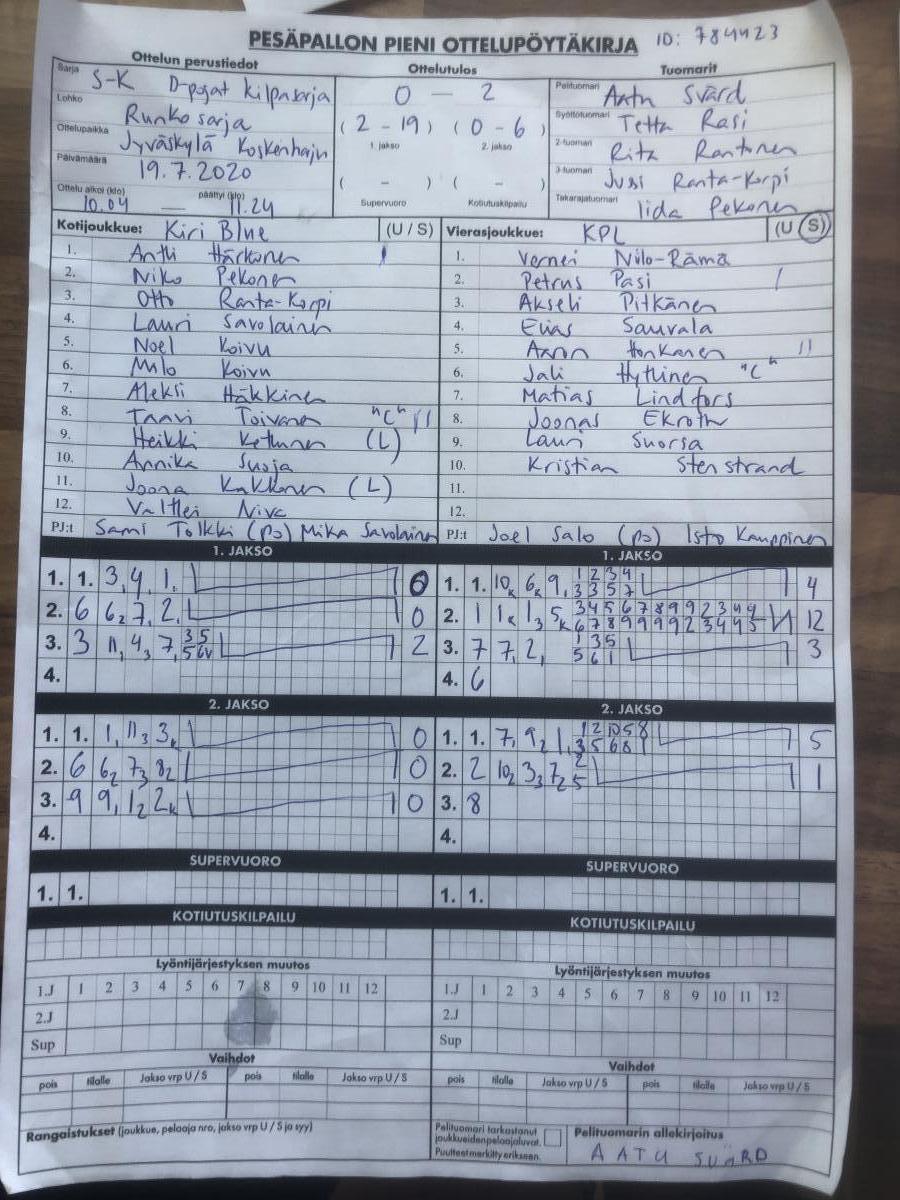 PESÄPALLON PIENI OTTELUPÖYTÄKIRJA ID: 784423
Ottelun perustiedot
Sarja S-K D-pojat kilpasarja
Lohko Runkosarja
Ottelupaikka Jyväskylä Koskenharju
Päivämäärä 19.7.2020
Ottelu alkoi (klo) päättyi (klo)
10.04 — 11.24
Ottelutulos
0 — 2
(2-19) (0-6)
1. jakso 2. jakso
( - ) ( - )
Supervuoro Kotiutuskilpailu
Tuomarit
Pelituomari Aatu Svärd
Syöttötuomari Rasi
2-tuomari Rantanen
3-tuomari Jussi Ranta-Korpi
Takarajatuomari Iida Pekonen
Kotijoukkue: Kiri Blue (U / S)
1. Antti Härkönen I
2. Niko Pekonen
3. Otto Ranta-Korpi
4. Lauri Savolainen
5. Noel Koivu
6. Milo Koivu
7. Aleksi Häkkinen
8. Taavi Toivanen "C" II
9. Heikki Kettunen (L)
10. Annika Suoja
11. Joona Kakkonen (L)
12. Valtteri
PJ:t Sami Tolkki (pj) Mika Savolainen
Vierasjoukkue: KPL (U / S)
1. Verneri Nilo-Rämä
2. Petrus Pasi I
3. Akseli Pitkänen
4. Elias Sauvala
5. Aaron Honkanen II
6. Jali Hytinen "C"
7. Matias Lindfors
8. Joonas Ekroth
9. Lauri Suorsa
10. Kristian Stenstrand
11.
12.
PJ:t Joel Salo (pj) Isto Kauppinen
1. JAKSO
1. 1. 3, 4, 1. 0
2. 6 6, 7, 2, 0
3. 3 11, 4, 7, 2
4.
1. JAKSO
1. 1. 10 6 9, 4
2. 1 12
3. 7 7, 2, 3
4. 6
2. JAKSO
1. 1. 1, 11 3 0
2. 6 6 7 8 0
3. 9 9, 1 2 0
4.
2. JAKSO
1. 1. 7, 9 1, 5
2. 2 10 3 7 1
3. 8
4.
SUPERVUORO
1. 1.
SUPERVUORO
1. 1.
KOTIUTUSKILPAILU
KOTIUTUSKILPAILU
Lyöntijärjestyksen muutos
1.J 1 2 3 4 5 6 7 8 9 10 11 12
2.J
Sup
Lyöntijärjestyksen muutos
1.J 1 2 3 4 5 6 7 8 9 10 11 12
2.J
Sup
Vaihdot
pois tilalle Jakso vrp U / S pois tilalle Jakso vrp U / S
Vaihdot
pois tilalle Jakso vrp U / S pois tilalle Jakso vrp U / S
Rangaistukset (joukkue, pelaaja nro, jakso vrp U / S ja syy)
Pelituomari tarkastanut
joukkueiden pelaajaluvat.
Puutteet merkitty erikseen.
Pelituomarin allekirjoitus
AATU SVÄRD